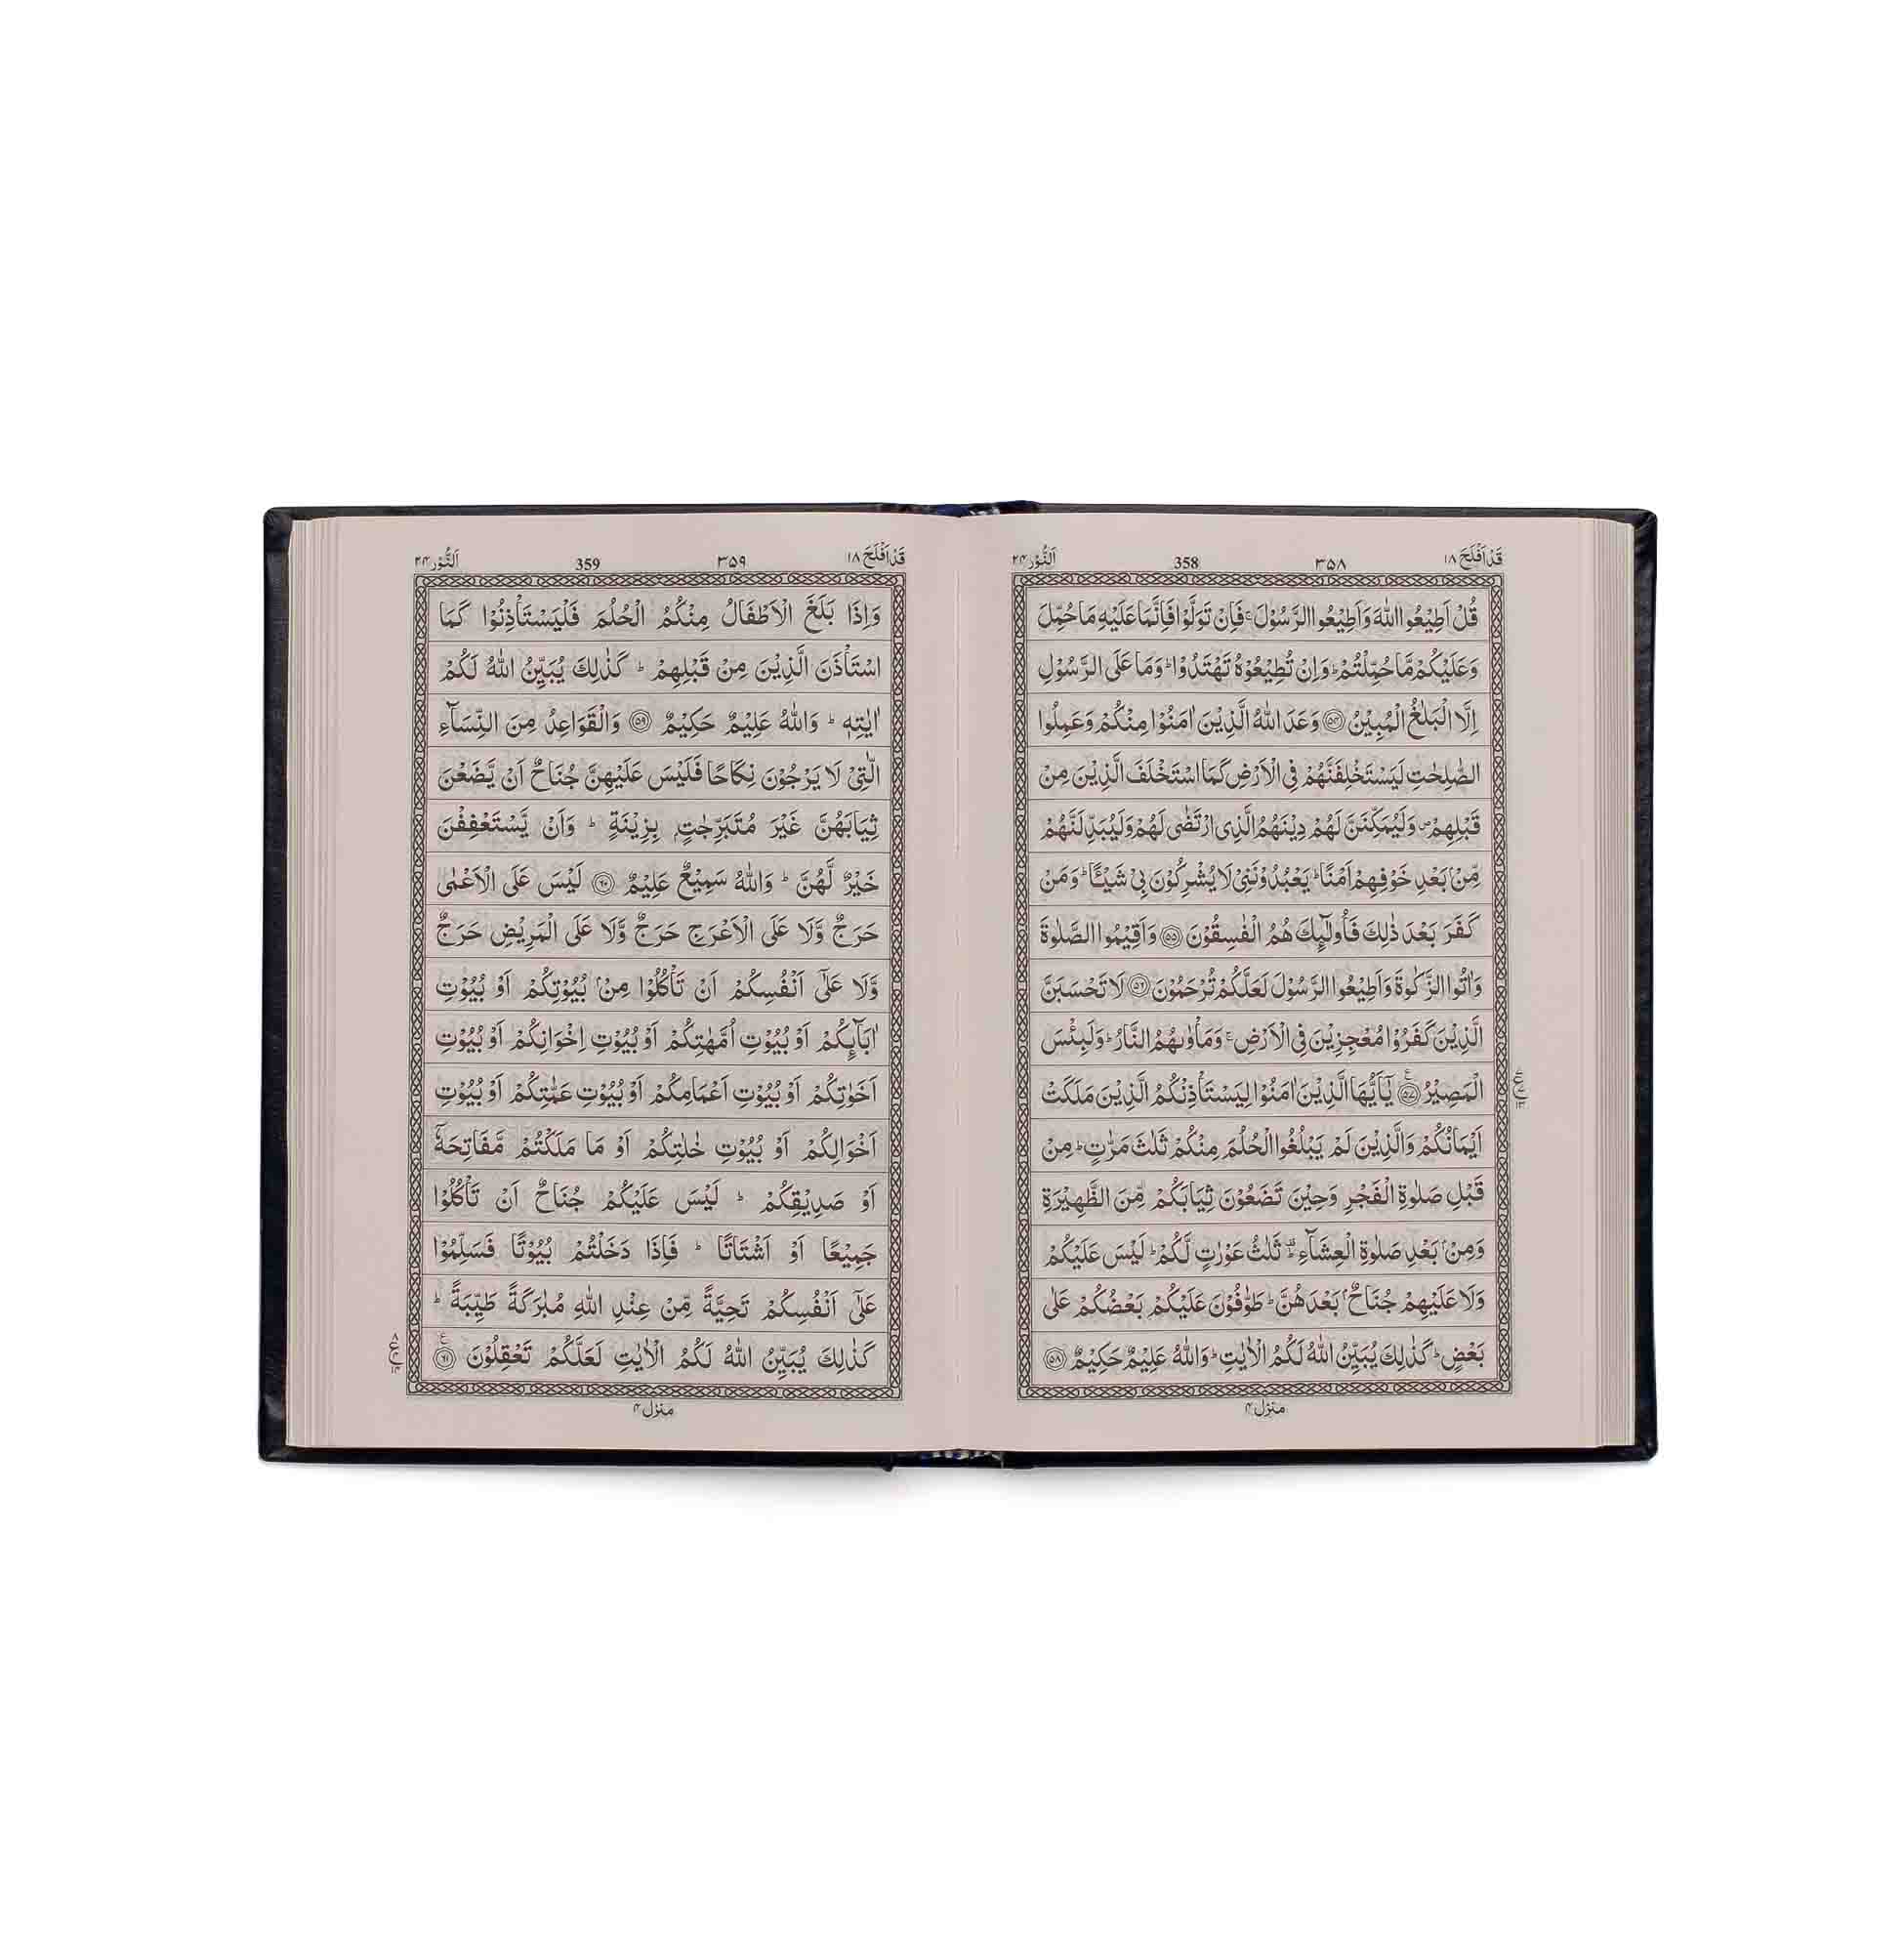 قَدْ اَفْلَحَ ١٨ ٣٥٨ 358 اَلنُّوْر ٢٤
قُلْ اَطِيْعُوا اللّٰهَ وَاَطِيْعُوا الرَّسُوْلَ ۚ فَاِنْ تَوَلَّوْا فَاِنَّمَا عَلَيْهِ مَا حُمِّلَ
وَعَلَيْكُمْ مَّا حُمِّلْتُمْ ؕ وَاِنْ تُطِيْعُوْهُ تَهْتَدُوْا ؕ وَمَا عَلَى الرَّسُوْلِ
اِلَّا الْبَلٰغُ الْمُبِيْنُ ﴿٥٤﴾ وَعَدَ اللّٰهُ الَّذِيْنَ اٰمَنُوْا مِنْكُمْ وَعَمِلُوا
الصّٰلِحٰتِ لَيَسْتَخْلِفَنَّهُمْ فِى الْاَرْضِ كَمَا اسْتَخْلَفَ الَّذِيْنَ مِنْ
قَبْلِهِمْ ۪ وَلَيُمَكِّنَنَّ لَهُمْ دِيْنَهُمُ الَّذِى ارْتَضٰى لَهُمْ وَلَيُبَدِّلَنَّهُمْ
مِّنْۢ بَعْدِ خَوْفِهِمْ اَمْنًا ؕ يَعْبُدُوْنَنِىْ لَا يُشْرِكُوْنَ بِىْ شَيْـًٔا ؕ وَمَنْ
كَفَرَ بَعْدَ ذٰلِكَ فَاُولٰٓئِكَ هُمُ الْفٰسِقُوْنَ ﴿٥٥﴾ وَاَقِيْمُوا الصَّلٰوةَ
وَاٰتُوا الزَّكٰوةَ وَاَطِيْعُوا الرَّسُوْلَ لَعَلَّكُمْ تُرْحَمُوْنَ ﴿٥٦﴾ لَا تَحْسَبَنَّ
الَّذِيْنَ كَفَرُوْا مُعْجِزِيْنَ فِى الْاَرْضِ ۚ وَمَاْوٰىهُمُ النَّارُ ؕ وَلَبِئْسَ
الْمَصِيْرُ ﴿٥٧﴾ يٰۤاَيُّهَا الَّذِيْنَ اٰمَنُوْا لِيَسْتَاْذِنْكُمُ الَّذِيْنَ مَلَكَتْ
اَيْمَانُكُمْ وَالَّذِيْنَ لَمْ يَبْلُغُوا الْحُلُمَ مِنْكُمْ ثَلٰثَ مَرّٰتٍ ؕ مِنْ
قَبْلِ صَلٰوةِ الْفَجْرِ وَحِيْنَ تَضَعُوْنَ ثِيَابَكُمْ مِّنَ الظَّهِيْرَةِ
وَمِنْۢ بَعْدِ صَلٰوةِ الْعِشَآءِ ؕ ثَلٰثُ عَوْرٰتٍ لَّكُمْ ؕ لَيْسَ عَلَيْكُمْ
وَلَا عَلَيْهِمْ جُنَاحٌۢ بَعْدَهُنَّ ؕ طَوّٰفُوْنَ عَلَيْكُمْ بَعْضُكُمْ عَلٰى
بَعْضٍ ؕ كَذٰلِكَ يُبَيِّنُ اللّٰهُ لَكُمُ الْاٰيٰتِ ؕ وَاللّٰهُ عَلِيْمٌ حَكِيْمٌ ﴿٥٨﴾
منزل ٤
قَدْ اَفْلَحَ ١٨ ٣٥٩ 359 اَلنُّوْر ٢٤
وَاِذَا بَلَغَ الْاَطْفَالُ مِنْكُمُ الْحُلُمَ فَلْيَسْتَاْذِنُوْا كَمَا
اسْتَاْذَنَ الَّذِيْنَ مِنْ قَبْلِهِمْ ؕ كَذٰلِكَ يُبَيِّنُ اللّٰهُ لَكُمْ
اٰيٰتِهٖ ؕ وَاللّٰهُ عَلِيْمٌ حَكِيْمٌ ﴿٥٩﴾ وَالْقَوَاعِدُ مِنَ النِّسَآءِ
الّٰتِىْ لَا يَرْجُوْنَ نِكَاحًا فَلَيْسَ عَلَيْهِنَّ جُنَاحٌ اَنْ يَّضَعْنَ
ثِيَابَهُنَّ غَيْرَ مُتَبَرِّجٰتٍۭ بِزِيْنَةٍ ؕ وَاَنْ يَّسْتَعْفِفْنَ
خَيْرٌ لَّهُنَّ ؕ وَاللّٰهُ سَمِيْعٌ عَلِيْمٌ ﴿٦٠﴾ لَيْسَ عَلَى الْاَعْمٰى
حَرَجٌ وَّلَا عَلَى الْاَعْرَجِ حَرَجٌ وَّلَا عَلَى الْمَرِيْضِ حَرَجٌ
وَّلَا عَلٰٓى اَنْفُسِكُمْ اَنْ تَاْكُلُوْا مِنْۢ بُيُوْتِكُمْ اَوْ بُيُوْتِ
اٰبَآئِكُمْ اَوْ بُيُوْتِ اُمَّهٰتِكُمْ اَوْ بُيُوْتِ اِخْوَانِكُمْ اَوْ بُيُوْتِ
اَخَوٰتِكُمْ اَوْ بُيُوْتِ اَعْمَامِكُمْ اَوْ بُيُوْتِ عَمّٰتِكُمْ اَوْ بُيُوْتِ
اَخْوَالِكُمْ اَوْ بُيُوْتِ خٰلٰتِكُمْ اَوْ مَا مَلَكْتُمْ مَّفَاتِحَهٗۤ
اَوْ صَدِيْقِكُمْ ؕ لَيْسَ عَلَيْكُمْ جُنَاحٌ اَنْ تَاْكُلُوْا
جَمِيْعًا اَوْ اَشْتَاتًا ؕ فَاِذَا دَخَلْتُمْ بُيُوْتًا فَسَلِّمُوْا
عَلٰٓى اَنْفُسِكُمْ تَحِيَّةً مِّنْ عِنْدِ اللّٰهِ مُبٰرَكَةً طَيِّبَةً ؕ
كَذٰلِكَ يُبَيِّنُ اللّٰهُ لَكُمُ الْاٰيٰتِ لَعَلَّكُمْ تَعْقِلُوْنَ ﴿٦١﴾
منزل ٤